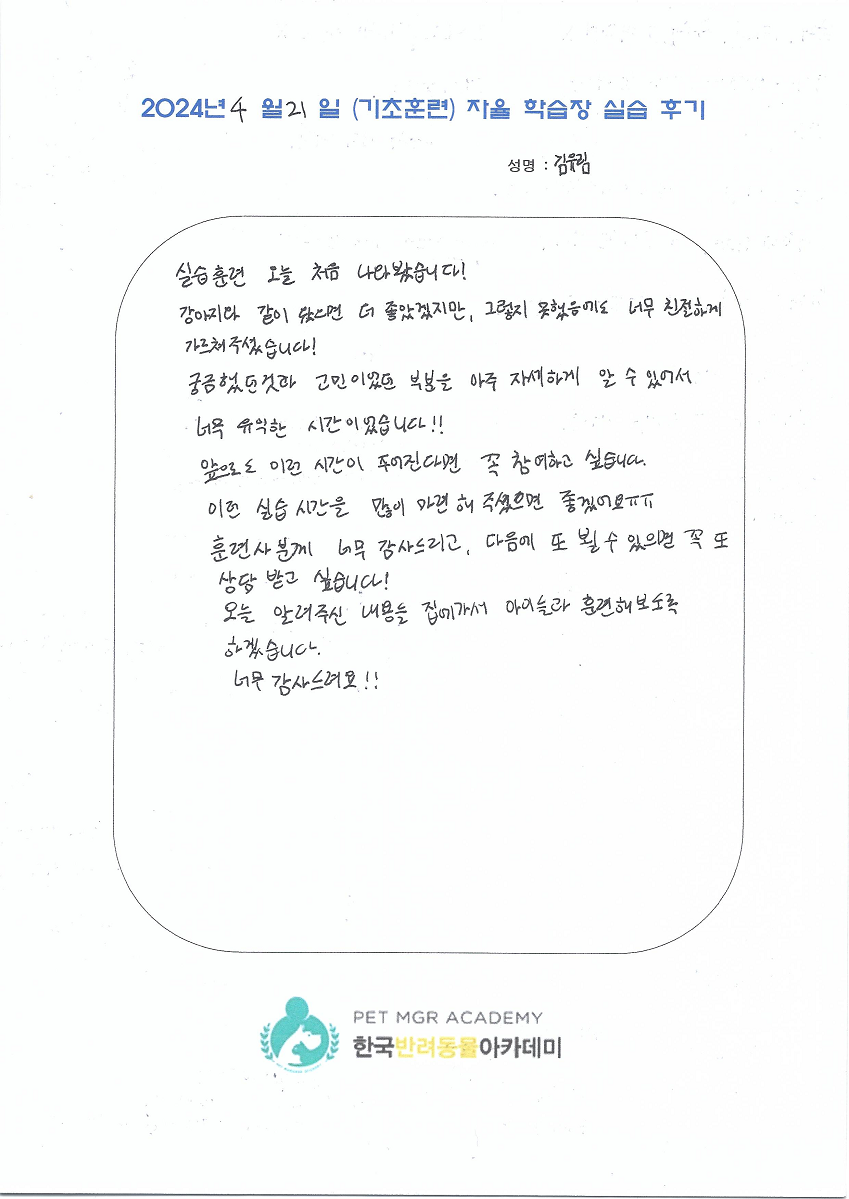 2024년 4 월 21 일 (기초훈련) 자율 학습장 실습 후기
성명 : 김유림
실습훈련 오늘 처음 나와봤습니다!
강아지와 같이 왔으면 더 좋았겠지만, 그렇지 못했음에도 너무 친절하게
가르쳐주셨습니다!
궁금했던것과 고민이었던 부분을 아주 자세하게 알 수 있어서
너무 유익한 시간이었습니다!!
앞으로도 이런 시간이 주어진다면 꼭 참여하고 싶습니다.
이런 실습 시간을 많이 마련해 주셨으면 좋겠어요ㅠㅠ
훈련사분께 너무 감사드리고, 다음에 또 뵐 수 있으면 꼭 또
상담 받고 싶습니다!
오늘 알려주신 내용들 집에가서 아이들과 훈련해보도록
하겠습니다.
너무 감사드려요!!
PET MGR ACADEMY
한국반려동물아카데미